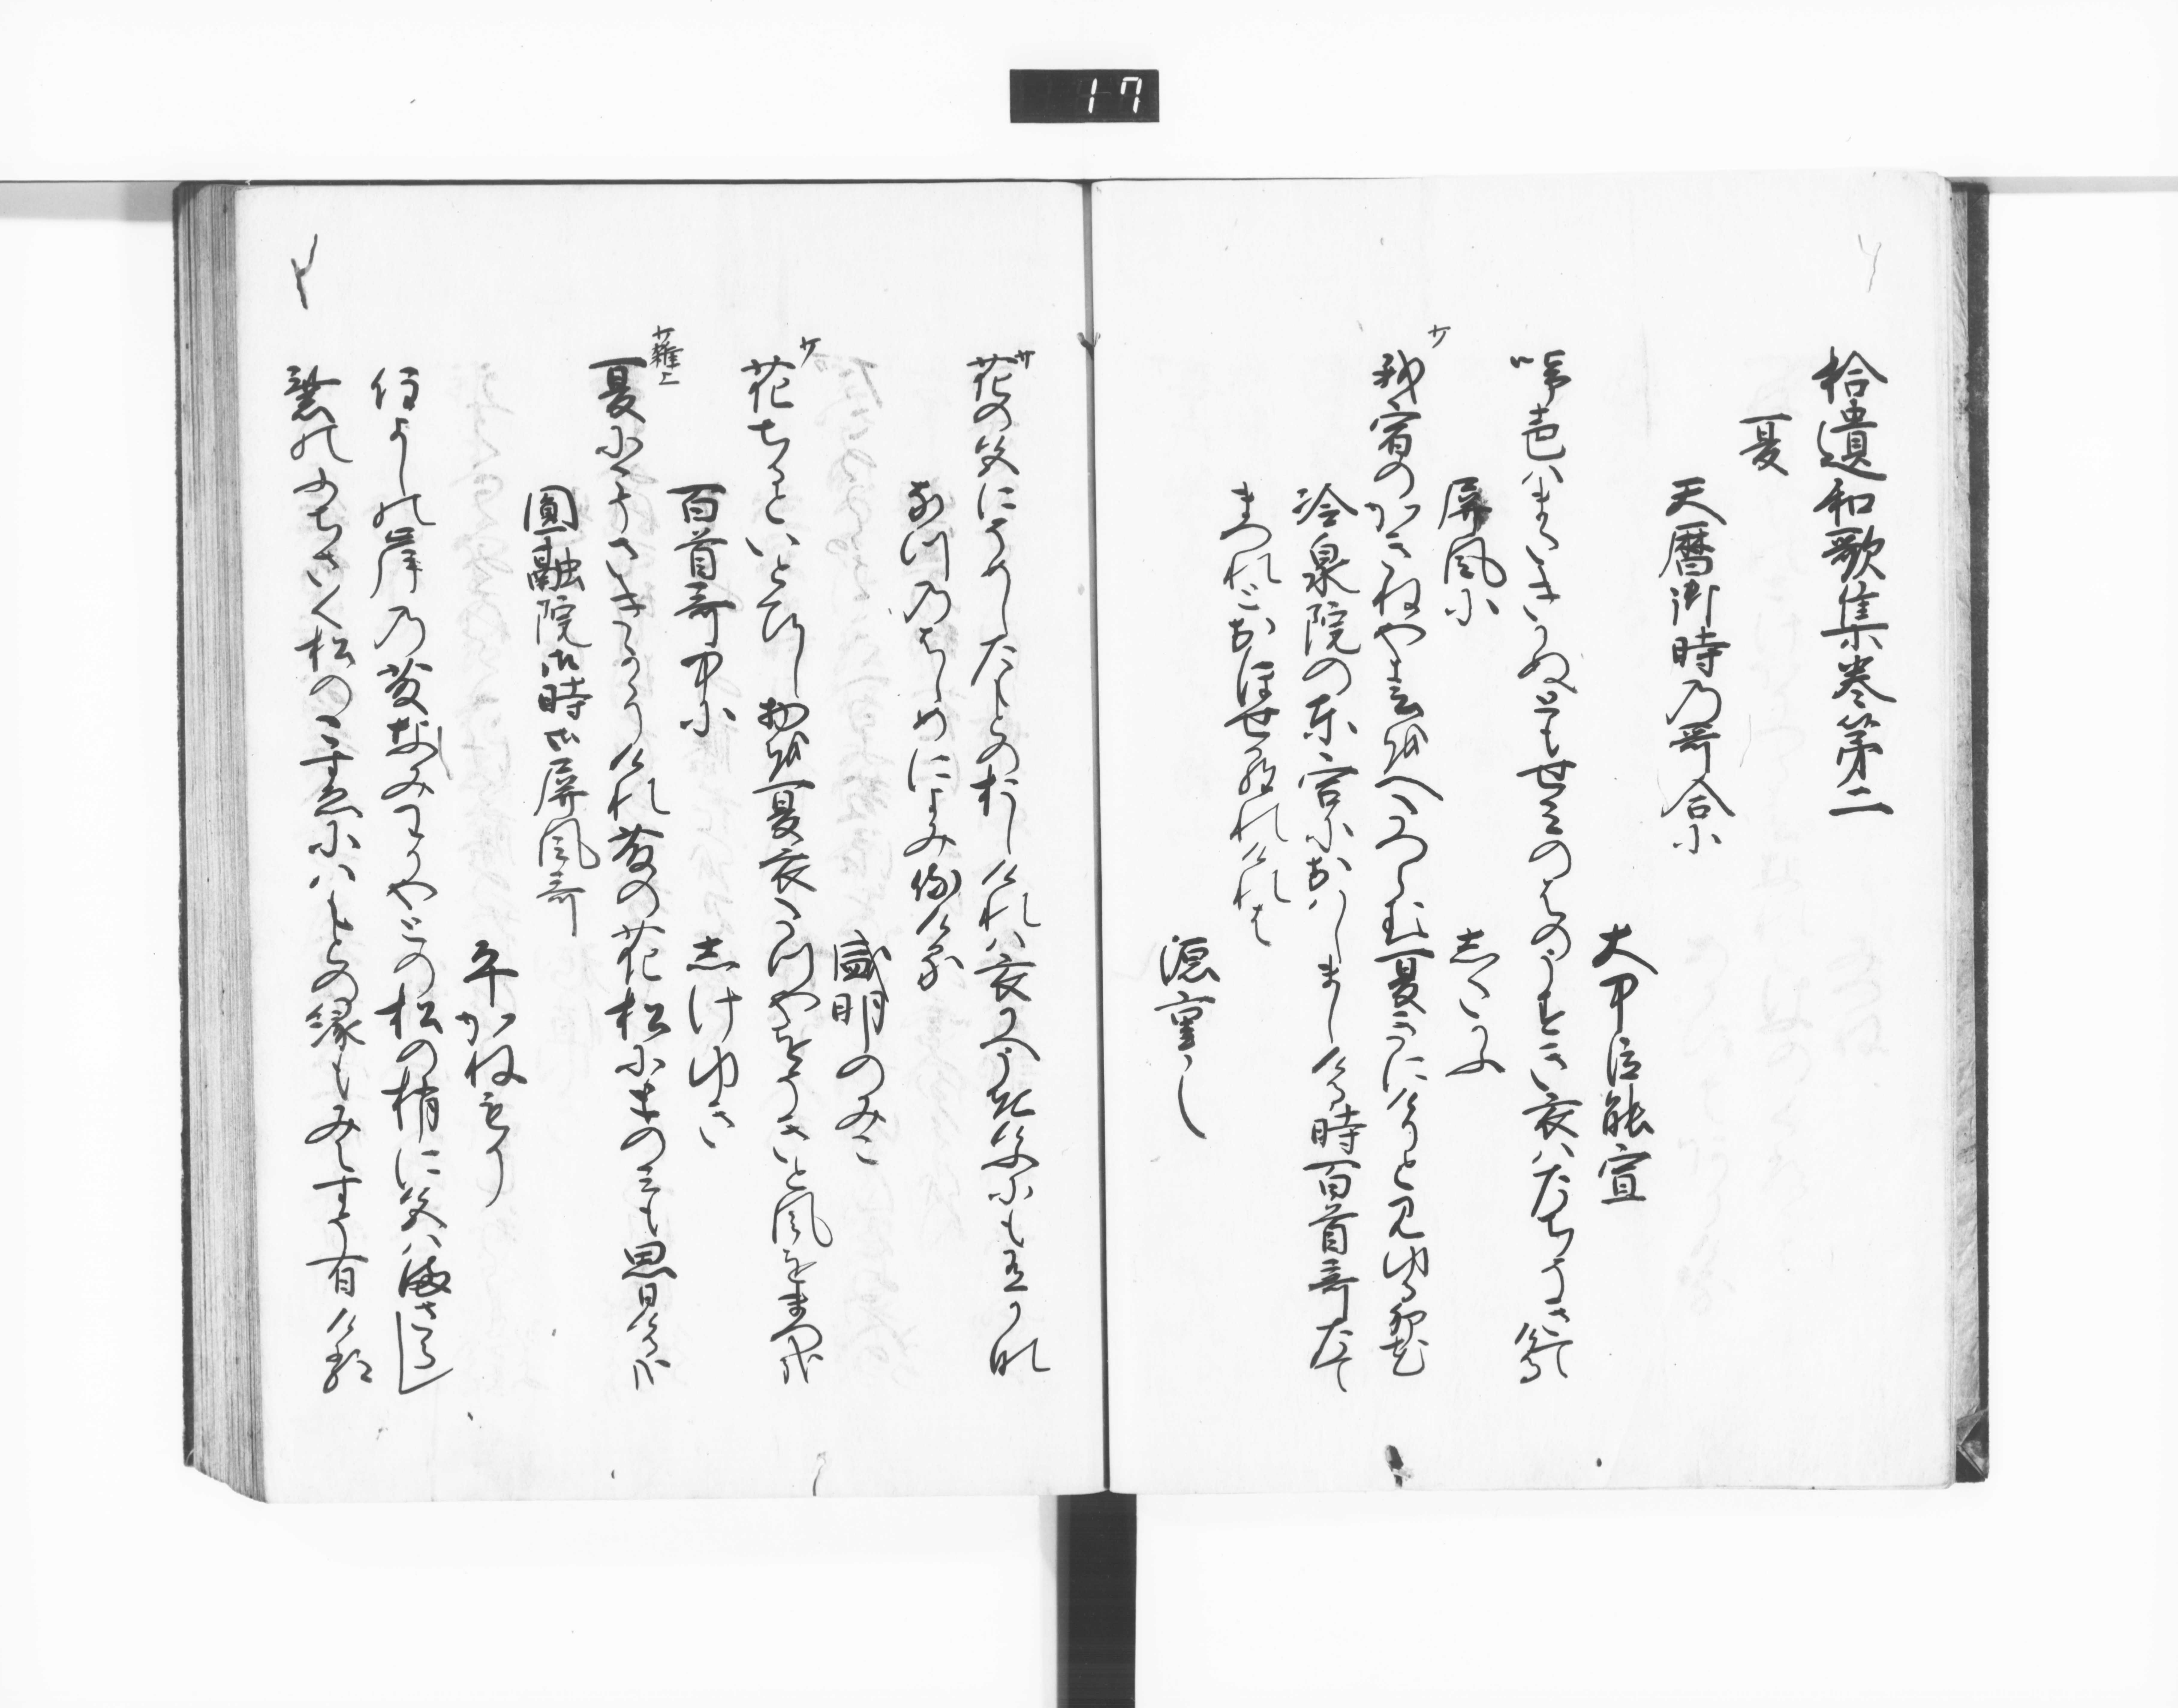 17
拾遺和歌集巻第二
夏
天暦御時乃哥合に
大中臣能宣
啼声はまたきかぬとも せみのはのうすき衣はたちそきてける
屏風に
したかふ
サ
我宿のかきねや春をへたつらむ夏きにけりと見ゆる卯花
冷泉院の東宮におはしましける時百首哥たて
まつれとおほせられけれは
源重之
サ
花の色にそめしたもとのおしけれは衣かへうき
なつのはしめによみ侍ける
盛明のみこ
サ
花ちるといとひし物を夏衣たつやをそきと風をまつ哉
百首哥中に
しけゆき
サ雑上
夏にこそさきかゝりけれ藤の花松にとのみも思ける哉
圓融院御時御屏風哥
平かねもり
住よしの岸乃藤なみわかやとの松の梢に色はまさらし
紫の藤さく松のこすゑにはもとの緑もみえすそ有ける